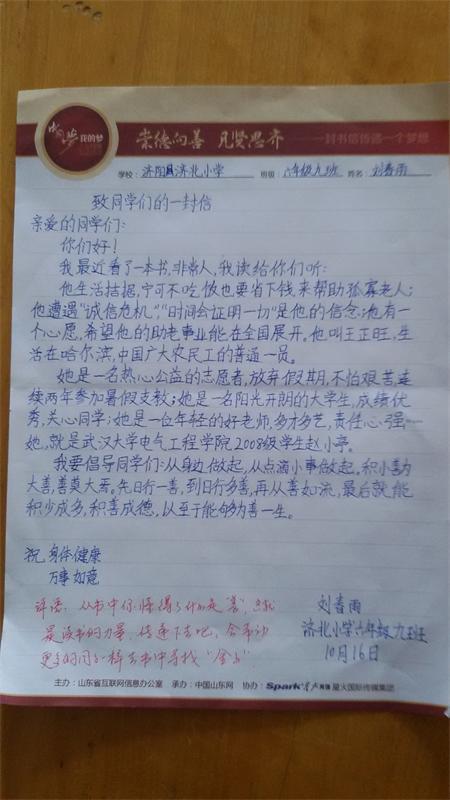 中国梦 我的梦
崇德向善 见贤思齐
一封书信传递一个梦想
学校:济阳县济北小学 班级:六年级九班 姓名:刘春雨
致同学们的一封信
亲爱的同学们:
你们好!
我最近看了一本书,非常人,我读给你们听:
他生活拮据,宁可不吃饭也要省下钱来帮助孤寡老人;
他遭遇“诚信危机”,“时间会证明一切”是他的信念;他有一
个心愿,希望他的助老事业能在全国展开。他叫王正旺,生
活在哈尔滨,中国广大农民工的普通一员。
她是一名热心公益的志愿者,放弃假期,不怕艰苦连
续两年参加暑假支教;她是一名阳光开朗的大学生,成绩优
秀,关心同学;她是一位年轻的好老师,多才多艺,责任心强…
她,就是武汉大学电气工程学院2008级学生赵小亭。
我要倡导同学们:从身边做起,从点滴小事做起,积小善为
大善,善莫大焉。先日行一善,到日行多善,再从善如流,最后就能
积少成多,积善成德,以至于能够为善一生。
祝 身体健康
万事如意
评语:从书中你懂得了什么是“善”,
是读书的力量,传递下去吧,会带动
更多的同学一样去书中寻找“金子”.
刘春雨
济北小学六年级九班
10月16日
主办:山东省互联网信息办公室 承办:中国山东网 协办:Spark 星火国际传媒集团